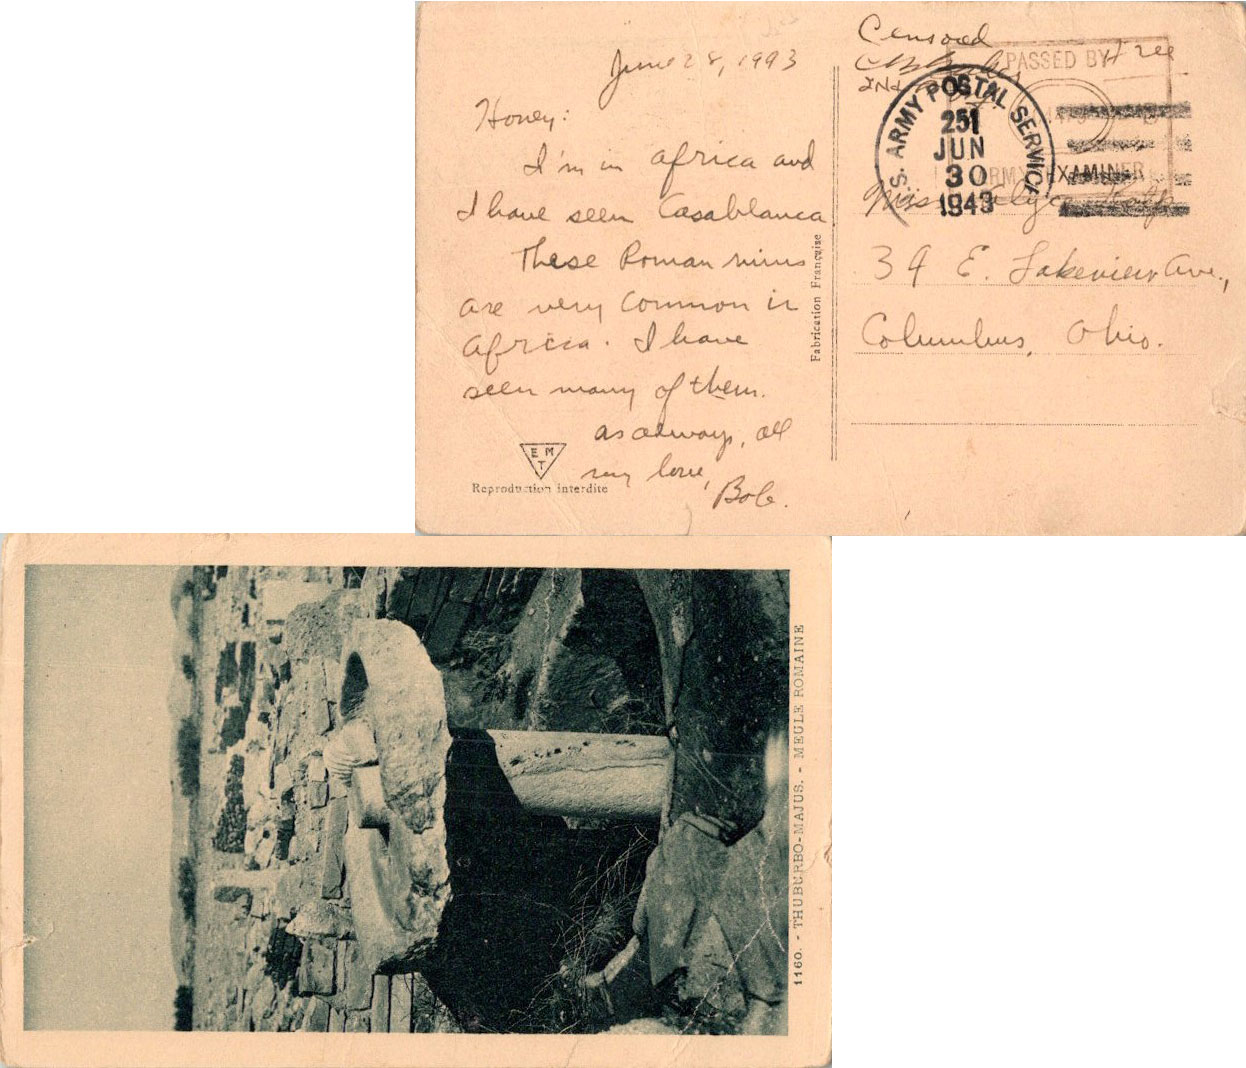 June 28, 1943
Honey:
I'm in Africa and
I have seen Casablanca
These Roman ruins
are very common in
Africa. I have
seen many of them.
as always, all
my love,
Bob.
EMT
Reproduction interdite
Fabrication Française
Censored
Free
2nd
PASSED BY
ARMY EXAMINER
U.S. ARMY POSTAL SERVICE
251
JUN
30
1943
Miss
39 E. Lakeview Ave.,
Columbus, Ohio.
1160. - THUBURBO-MAJUS. - MEULE ROMAINE